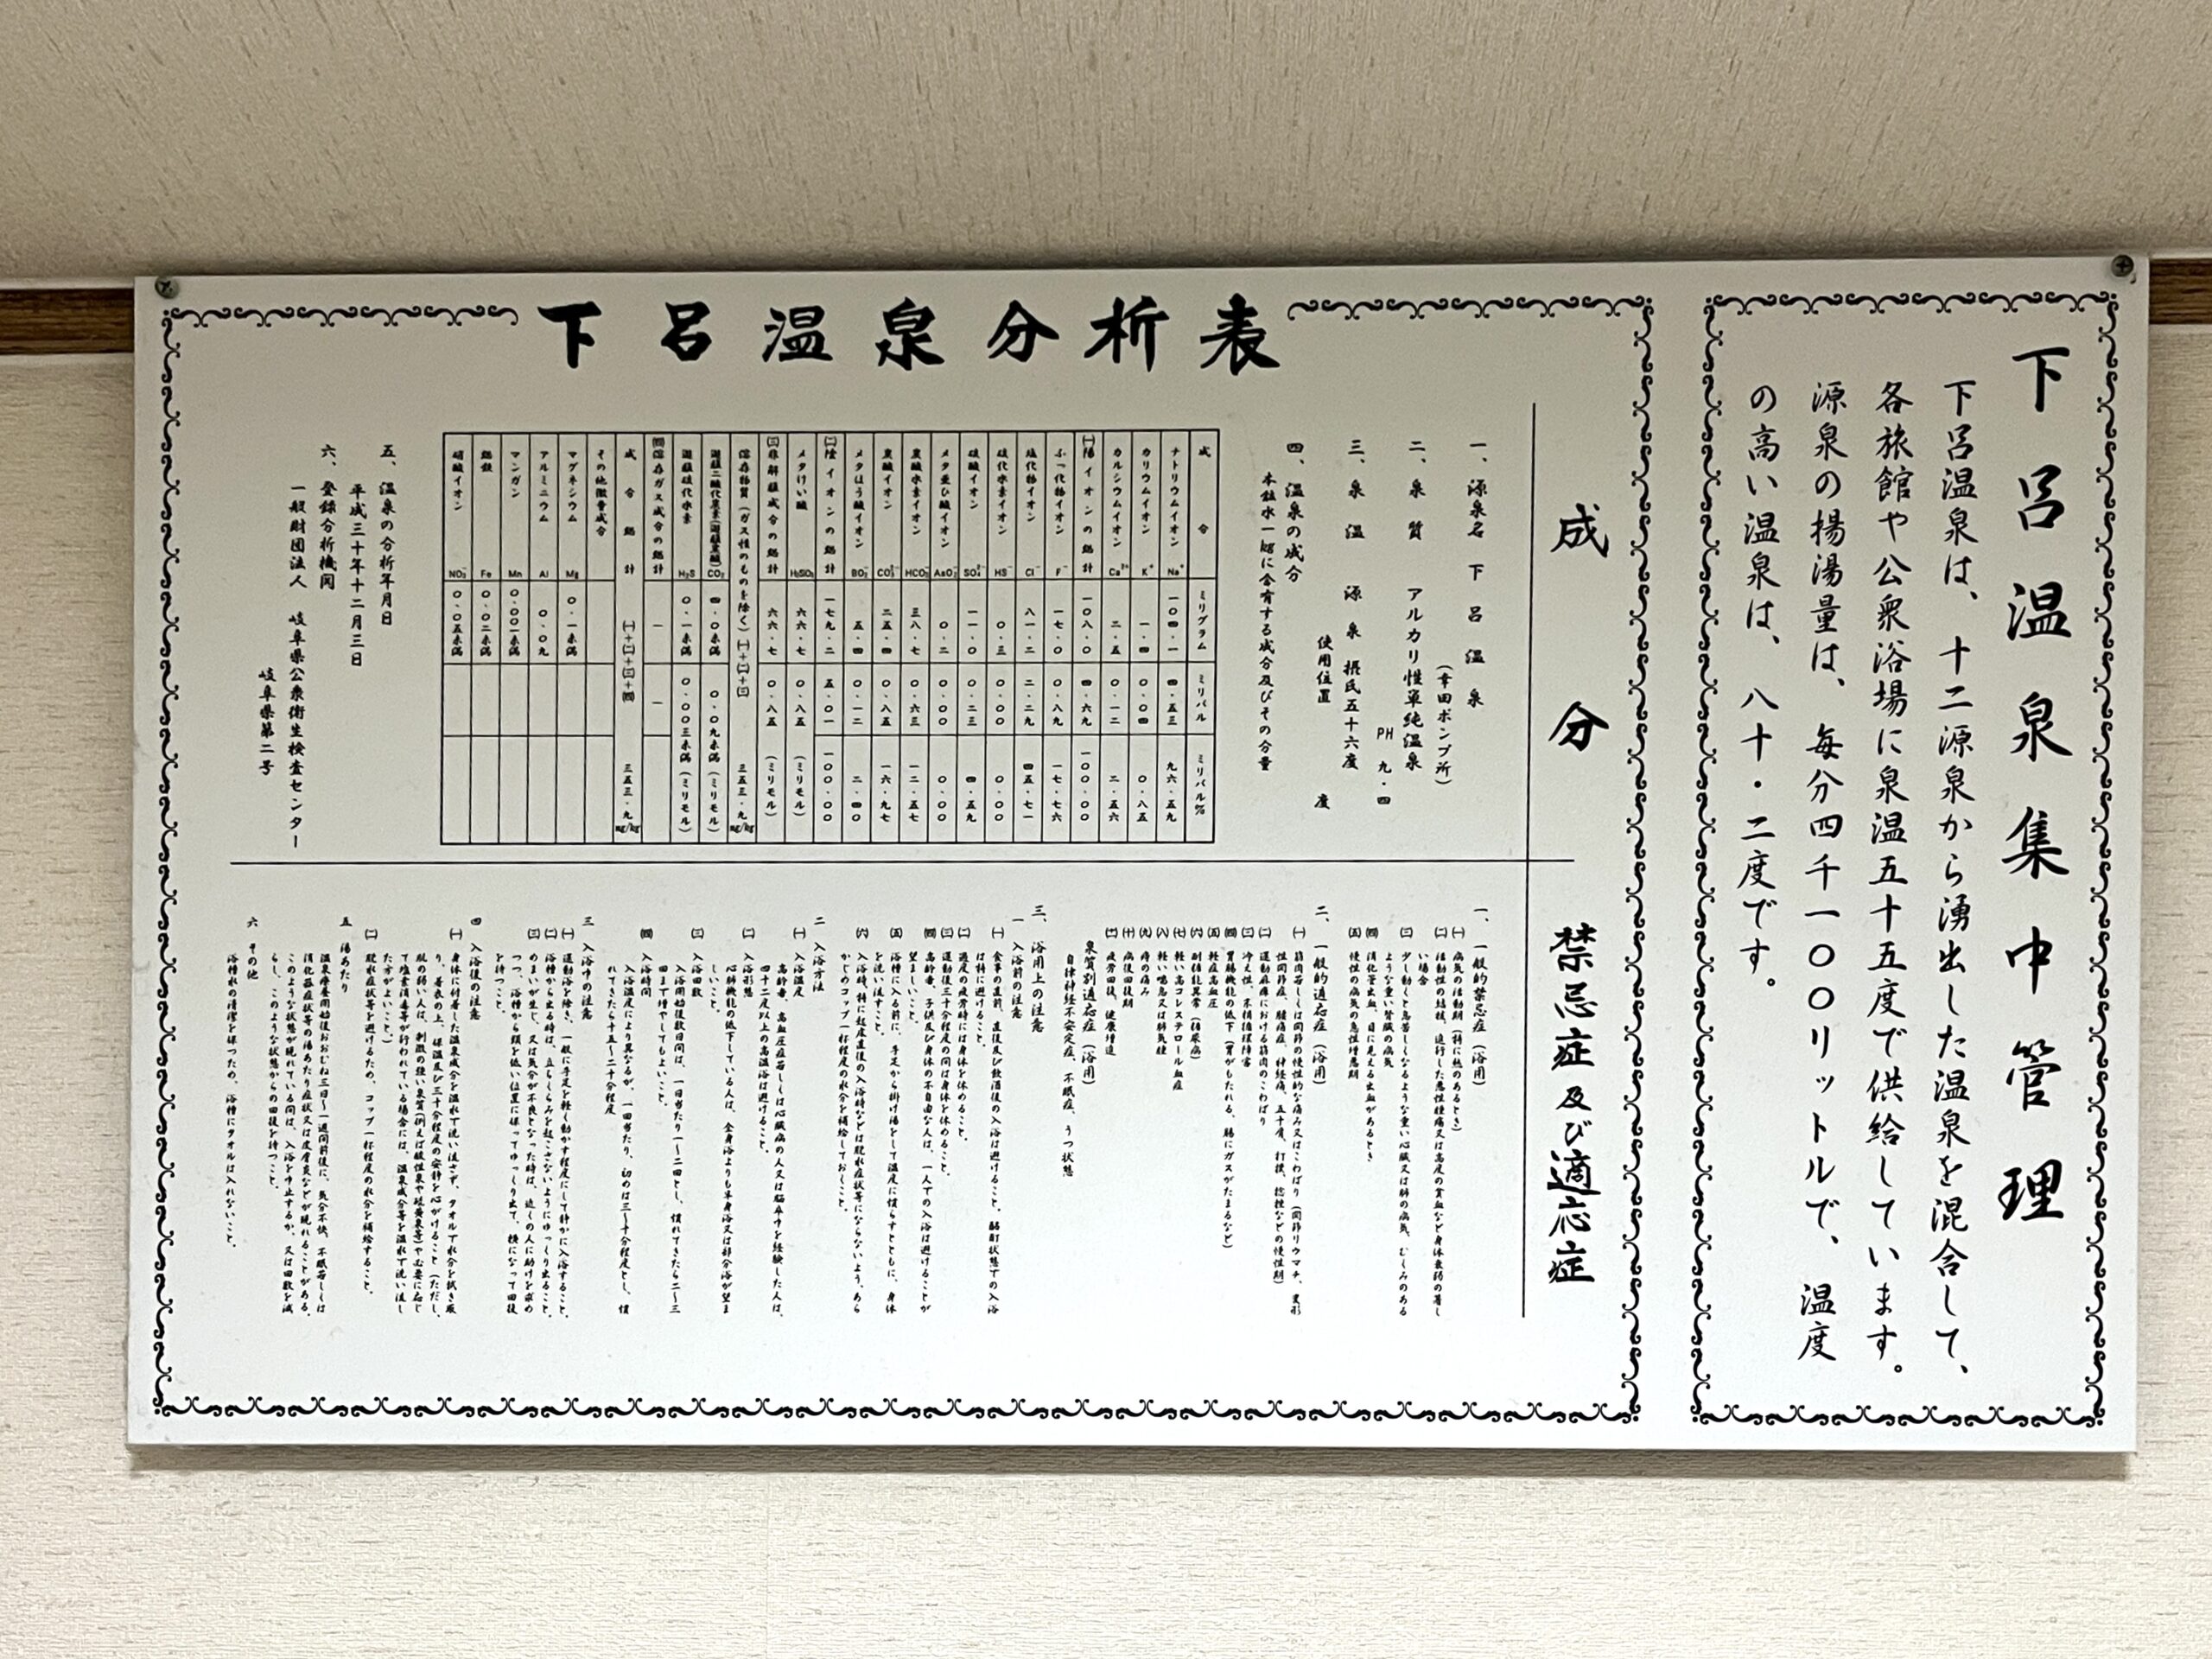 下呂温泉集中管理
下呂温泉は、十二源泉から湧出した温泉を混合して、
各旅館や公衆浴場に泉温五十五度で供給しています。
源泉の揚湯量は、毎分四千一〇〇リットルで、温度
の高い温泉は、八十・二度です。
下呂温泉分析表
成分
一、源泉名 下呂温泉
（幸田ポンプ所）
二、泉質 アルカリ性単純温泉
PH 九・四
三、泉温 源泉 摂氏五十六度
使用位置 度
四、温泉の成分
本鉱水一kgに含有する成分及びその分量
成分 ミリグラム ミリバル ミリバル%
ナトリウムイオン Na⁺ 一〇四・一 四・五三 九六・五九
カリウムイオン K⁺ 一・四 〇・〇四 〇・八五
カルシウムイオン Ca²⁺ 二・五 〇・一二 二・五六
(一)陽イオンの総計 一〇八・〇 四・六九 一〇〇・〇〇
ふっ化物イオン F⁻ 一七・〇 〇・八九 一七・七六
塩化物イオン Cl⁻ 八一・二 二・二九 四五・七一
硫化水素イオン HS⁻ 〇・三 〇・〇〇 〇・〇〇
硫酸イオン SO₄²⁻ 一一・〇 〇・二三 四・五九
メタ亜ひ酸イオン AsO₂⁻ 〇・二 〇・〇〇 〇・〇〇
炭酸水素イオン HCO₃⁻ 三八・七 〇・六三 一二・五七
炭酸イオン CO₃²⁻ 二五・四 〇・八五 一六・九七
メタほう酸イオン BO₂⁻ 五・四 〇・一二 二・四〇
(二)陰イオンの総計 一七九・二 五・〇一 一〇〇・〇〇
メタけい酸 H₂SiO₃ 六六・七 〇・八五 （ミリモル）
(三)非解離成分の総計 六六・七 〇・八五 （ミリモル）
溶存物質（ガス性のものを除く） (一)+(二)+(三) 三五三・九 mg/kg
遊離二酸化炭素(遊離炭酸) CO₂ 四・〇未満 〇・〇九未満 （ミリモル）
遊離硫化水素 H₂S 〇・一未満 〇・〇〇三未満 （ミリモル）
(四)溶存ガス成分の総計 － －
成分総計 (一)+(二)+(三)+(四) 三五三・九 mg/kg
その他微量成分
マグネシウム Mg 〇・一未満
アルミニウム Al 〇・〇九
マンガン Mn 〇・〇〇一未満
総鉄 Fe 〇・〇二未満
硝酸イオン NO₃⁻ 〇・〇五未満
五、温泉の分析年月日
平成三十年十二月三日
六、登録分析機関
一般財団法人 岐阜県公衆衛生検査センター
岐阜県第二号
禁忌症及び適応症
一、一般的禁忌症（浴用）
(一) 病気の活動期（特に熱のあるとき）
(二) 活動性の結核、進行した悪性腫瘍又は高度の貧血など身体衰弱の著し
い場合
(三) 少し動くと息苦しくなるような重い心臓又は肺の病気、むくみのある
ような重い腎臓の病気
(四) 消化管出血、目に見える出血があるとき
(五) 慢性の病気の急性増悪期
二、一般的適応症（浴用）
(一) 筋肉若しくは関節の慢性的な痛み又はこわばり（関節リウマチ、変形
性関節症、腰痛症、神経痛、五十肩、打撲、捻挫などの慢性期）
(二) 運動麻痺における筋肉のこわばり
(三) 冷え性、末梢循環障害
(四) 胃腸機能の低下（胃がもたれる、腸にガスがたまるなど）
(五) 軽症高血圧
(六) 耐糖能異常（糖尿病）
(七) 軽い高コレステロール血症
(八) 軽い喘息又は肺気腫
(九) 痔の痛み
(十) 病後回復期
(十一) 疲労回復、健康増進
泉質別適応症（浴用）
自律神経不安定症、不眠症、うつ状態
三、浴用上の注意
一 入浴前の注意
(一) 食事の直前、直後及び飲酒後の入浴は避けること。酩酊状態での入浴
は特に避けること。
(二) 過度の疲労時には身体を休めること。
(三) 運動後三十分程度の間は身体を休めること。
(四) 高齢者、子供及び身体の不自由な人は、一人での入浴は避けることが
望ましいこと。
(五) 浴槽に入る前に、手足から掛け湯をして温度に慣らすとともに、身体
を洗い流すこと。
(六) 入浴時、特に起床直後の入浴時などは脱水症状等にならないよう、あら
かじめコップ一杯程度の水分を補給しておくこと。
二 入浴方法
(一) 入浴温度
高齢者、高血圧症若しくは心臓病の人又は脳卒中を経験した人は、
四十二度以上の高温浴は避けること。
(二) 入浴形態
心肺機能の低下している人は、全身浴よりも半身浴又は部分浴が望ま
しいこと。
(三) 入浴回数
入浴開始後数日間は、一日当たり一〜二回とし、慣れてきたら二〜三
回まで増やしてもよいこと。
(四) 入浴時間
入浴温度により異なるが、一回当たり、初めは三〜十分程度とし、慣
れてきたら十五〜二十分程度
三 入浴中の注意
(一) 運動浴を除き、一般に手足を軽く動かす程度にして静かに入浴すること。
(二) 浴槽から出る時は、立ちくらみを起こさないようにゆっくり出ること。
(三) めまいが生じ、又は気分が不良となった時は、近くの人に助けを求め
つつ、浴槽から頭を低い位置に保ってゆっくり出て、横になって回復
を待つこと。
四 入浴後の注意
(一) 身体に付着した温泉成分を温水で洗い流さず、タオルで水分を拭き取
り、着衣の上、保温及び三十分程度の安静を心がけること（ただし、
肌の弱い人は、刺激の強い泉質(例えば酸性泉や硫黄泉等)や必要に応じ
て塩素消毒等が行われている場合には、温泉成分等を温水で洗い流し
た方がよいこと）
(二) 脱水症状等を避けるため、コップ一杯程度の水分を補給すること。
五 湯あたり
温泉療養開始後おおむね三日〜一週間前後に、気分不快、不眠若しくは
消化器症状等の湯あたり症状又は皮膚炎などが現れることがある。
このような状態が現れている間は、入浴を中止するか、又は回数を減
らし、このような状態からの回復を待つこと。
六 その他
浴槽水の清潔を保つため、浴槽にタオルは入れないこと。